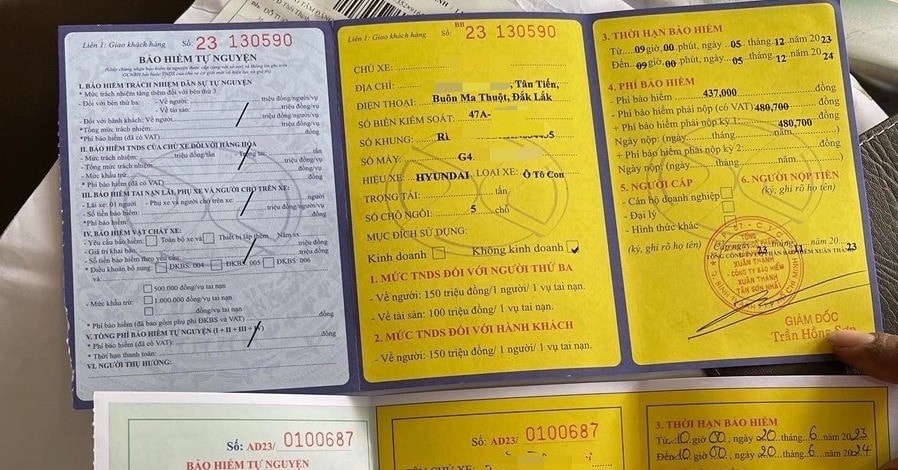 Liên 1: Giao khách hàng Số: 23 130590
BẢO HIỂM TỰ NGUYỆN
I. BẢO HIỂM TRÁCH NHIỆM DÂN SỰ TỰ NGUYỆN
* Mức trách nhiệm tăng thêm đối với bên thứ 3
- Đối với bên thứ ba: - Về người: triệu đồng/người/vụ
- Về tài sản: triệu đồng/vụ
- Đối với hành khách: Về người: triệu đồng/người/vụ
*Tổng mức trách nhiệm: triệu đồng/vụ
*Phí bảo hiểm (đã có VAT) đồng
II. BẢO HIỂM TNDS CỦA CHỦ XE ĐỐI VỚI HÀNG HÓA
- Mức trách nhiệm: triệu đồng/tấn Trọng tải: tấn
- Tổng mức trách nhiệm: triệu đồng/vụ
- Mức khấu trừ:
* Phí bảo hiểm (đã có VAT): đồng
III. BẢO HIỂM TAI NẠN LÁI, PHỤ XE VÀ NGƯỜI CHỞ TRÊN XE:
- Lái xe: 01 người - Phụ xe và người chở trên xe: người
- Số tiền bảo hiểm: triệu đồng/người/vụ
*Phí bảo hiểm: đồng
IV. BẢO HIỂM VẬT CHẤT XE
- Yêu cầu bảo hiểm: Toàn bộ xe Thiết bị lắp thêm Năm sx
- Giá trị khai báo: đồng
- Số tiền bảo hiểm theo yêu cầu: đồng
- Điều khoản bổ sung: ĐKBS. 004 ĐKBS. 005 ĐKBS. 006
và:
- Mức khấu trừ:
500.000 đồng/vụ tai nạn
1.000.000 đồng/vụ tai nạn
đồng/vụ tai nạn
* Phí bảo hiểm (đã bao gồm phụ phí ĐKBS và VAT) đồng
V. TỔNG PHÍ BẢO HIỂM TỰ NGUYỆN (I + II + III + IV)
* Phí bảo hiểm (đã có VAT) đồng
* Thời hạn thanh toán:
VI. NGƯỜI THỤ HƯỞNG:
BB
Liên 1: Giao khách hàng Số: 23 130590
CHỦ XE:
ĐỊA CHỈ: , Tân Tiến,
ĐIỆN THOẠI: Buôn Ma Thuột, Đắk Lắk
SỐ BIỂN KIỂM SOÁT: 47A-
SỐ KHUNG: Rl
SỐ MÁY: G4
HIỆU XE: HYUNDAI LOẠI XE: Ô Tô Con
TRỌNG TẢI: tấn
SỐ CHỖ NGỒI: 5 chỗ
MỤC ĐÍCH SỬ DỤNG:
Kinh doanh Không kinh doanh
1. MỨC TNDS ĐỐI VỚI NGƯỜI THỨ BA
- Về người: 150 triệu đồng/1 người/1 vụ tai nạn.
- Về tài sản: 100 triệu đồng/ 1 vụ tai nạn.
2. MỨC TNDS ĐỐI VỚI HÀNH KHÁCH
- Về người: 150 triệu đồng/ 1 người/ 1 vụ tai nạn.
3. THỜI HẠN BẢO HIỂM
Từ 09 giờ, 00 phút, ngày 05 tháng 12 năm 2023
Đến 09 giờ 00 phút, ngày 05 tháng 12 năm 2024
4. PHÍ BẢO HIỂM
- Phí bảo hiểm 437,000 đồng
- Phí bảo hiểm phải nộp (có VAT) 480,700 đồng
+ Phí bảo hiểm phải nộp kỳ 1: 480,700 đồng
Ngày nộp: (ngày tháng năm )
+ Phí bảo hiểm phải nộp kỳ 2: đồng
Ngày nộp: (ngày tháng năm )
5. NGƯỜI CẤP
- Cán bộ doanh nghiệp
- Đại lý
- Hình thức khác
(ký, ghi rõ họ tên)
6. NGƯỜI NỘP TIỀN
(ký, ghi rõ họ tên)
Cấp ngày 23 tháng 11 năm 2023
TỔNG CÔNG TY CỔ PHẦN BẢO HIỂM XUÂN THÀNH
XUÂN THÀNH
- CÔNG TY BẢO HIỂM
XUÂN THÀNH
TÂN SƠN NHẤT
GIÁM ĐỐC
Trần Hồng Sơn
Số: AD23/ 0100687
BẢO HIỂM TỰ NGUYỆN
Số: AD23/ 0100687
3. THỜI HẠN BẢO HIỂM
Từ 10 giờ 00, ngày 20 tháng 6 năm 2023
Đến 10 giờ 00, ngày 20 tháng 6 năm 2024